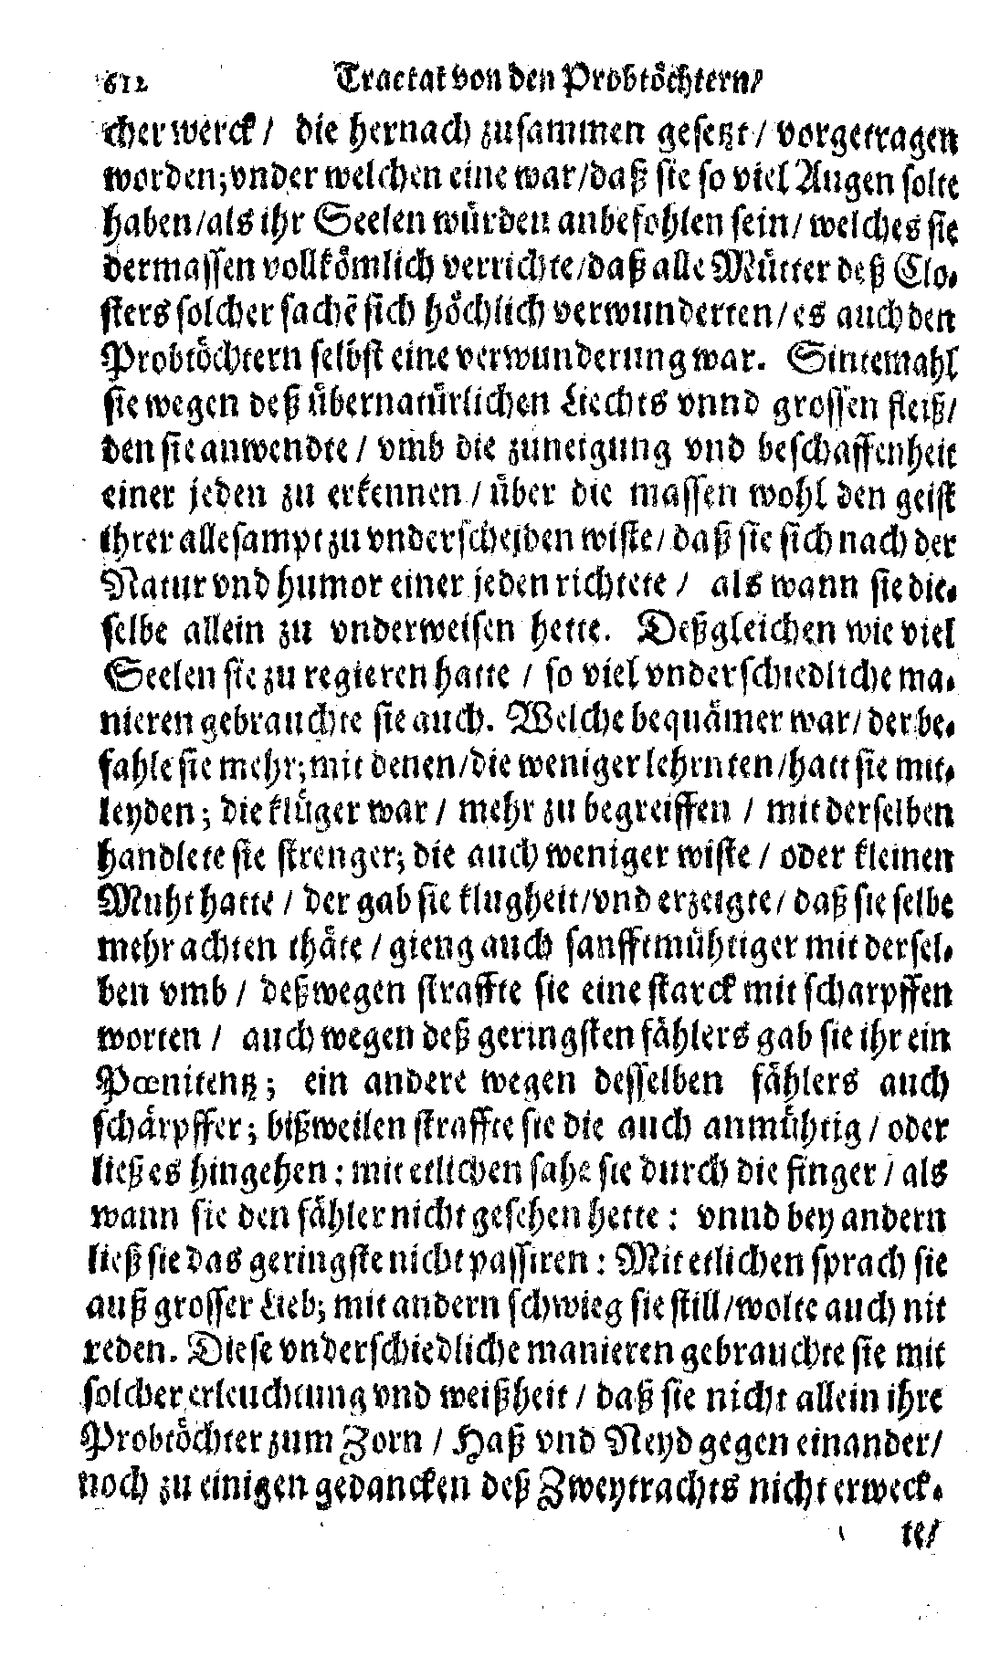 612 Tractat von den Probtöchtern/
cher werck/ die hernach zusammen gesetzt/ vorgetragen
worden; vnder welchen eine war/daß sie so viel Augen solte
haben/als ihr Seelen würden anbefohlen sein/ welches sie
dermassen vollkömlich verrichte/daß alle Mütter deß Clo-
sters solcher sachẽ sich höchlich verwunderten/es auch den
Probtöchtern selbst eine verwunderung war. Sintemahl
sie wegen deß übernatürlichen Liechts vnnd grossen fleiß/
den sie anwendte/ vmb die zuneigung vnd beschaffenheit
einer jeden zu erkennen/ über die massen wohl den geist
ihrer allesampt zu vnderscheiden wiste/ daß sie sich nach der
Natur vnd humor einer jeden richtete/ als wann sie die-
selbe allein zu vnderweisen hette. Deßgleichen wie viel
Seelen sie zu regieren hatte / so viel vnderschiedliche ma-
nieren gebrauchte sie auch. Welche bequämer war/ der be-
fahle sie mehr; mit denen/die weniger lehrnten/hatt sie mit-
leyden; die klüger war / mehr zu begreiffen / mit derselben
handlete sie strenger; die auch weniger wiste / oder kleinen
Muht hatte / der gab sie klugheit/vnd erzeigte/ daß sie selbe
mehr achten thäte / gieng auch sanfftmühtiger mit dersel-
ben vmb / deßwegen straffte sie eine starck mit scharpffen
worten / auch wegen deß geringsten fählers gab sie ihr ein
Pœnitentz; ein andere wegen desselben fählers auch
schärpffer; bißweilen straffte sie die auch anmühtig / oder
ließ es hingehen: mit etlichen sahe sie durch die finger / als
wann sie den fähler nicht gesehen hette: vnnd bey andern
ließ sie das geringste nicht passiren: Mit etlichen sprach sie
auß grosser Lieb; mit andern schwieg sie still/wolte auch nit
reden. Diese vnderschiedliche manieren gebrauchte sie mit
solcher erleuchtung vnd weißheit / daß sie nicht allein ihre
Probtöchter zum Zorn / Haß vnd Neyd gegen einander/
noch zu einigen gedancken deß Zweytrachts nicht erweck-
te/